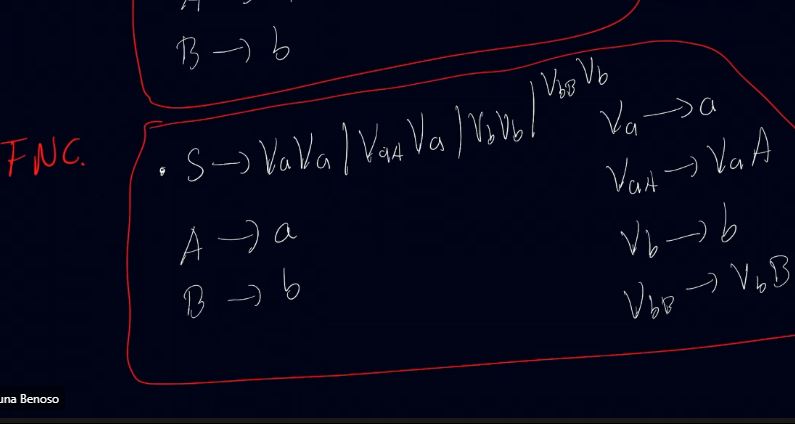 B → b
FNC.
. S → VaVa | VaA Va | VbVb | VbB Vb
Va → a
VaA → Va A
A → a
Vb → b
B → b
VbB → Vb B
una Benoso